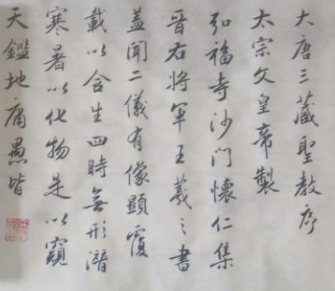 大唐三藏聖教序
太宗文皇帝製
弘福寺沙門懷仁集
晉右將軍王羲之書
蓋聞二儀有像顯覆
載以含生四時無形潛
寒暑以化物是以窺
天鑑地庸愚皆